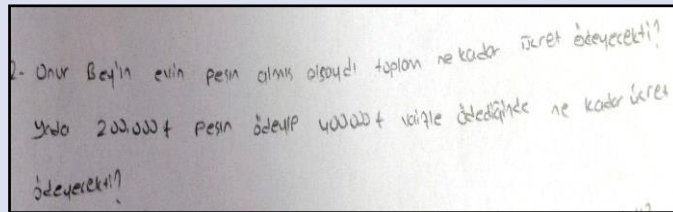 2- Onur Bey'in evin peşin almış olsaydı toplam ne kadar ücret ödeyecekti?
yada 200.000₺ peşin ödeyip 400000₺ ödediğinde ne kadar ücret
ödeyecekti?